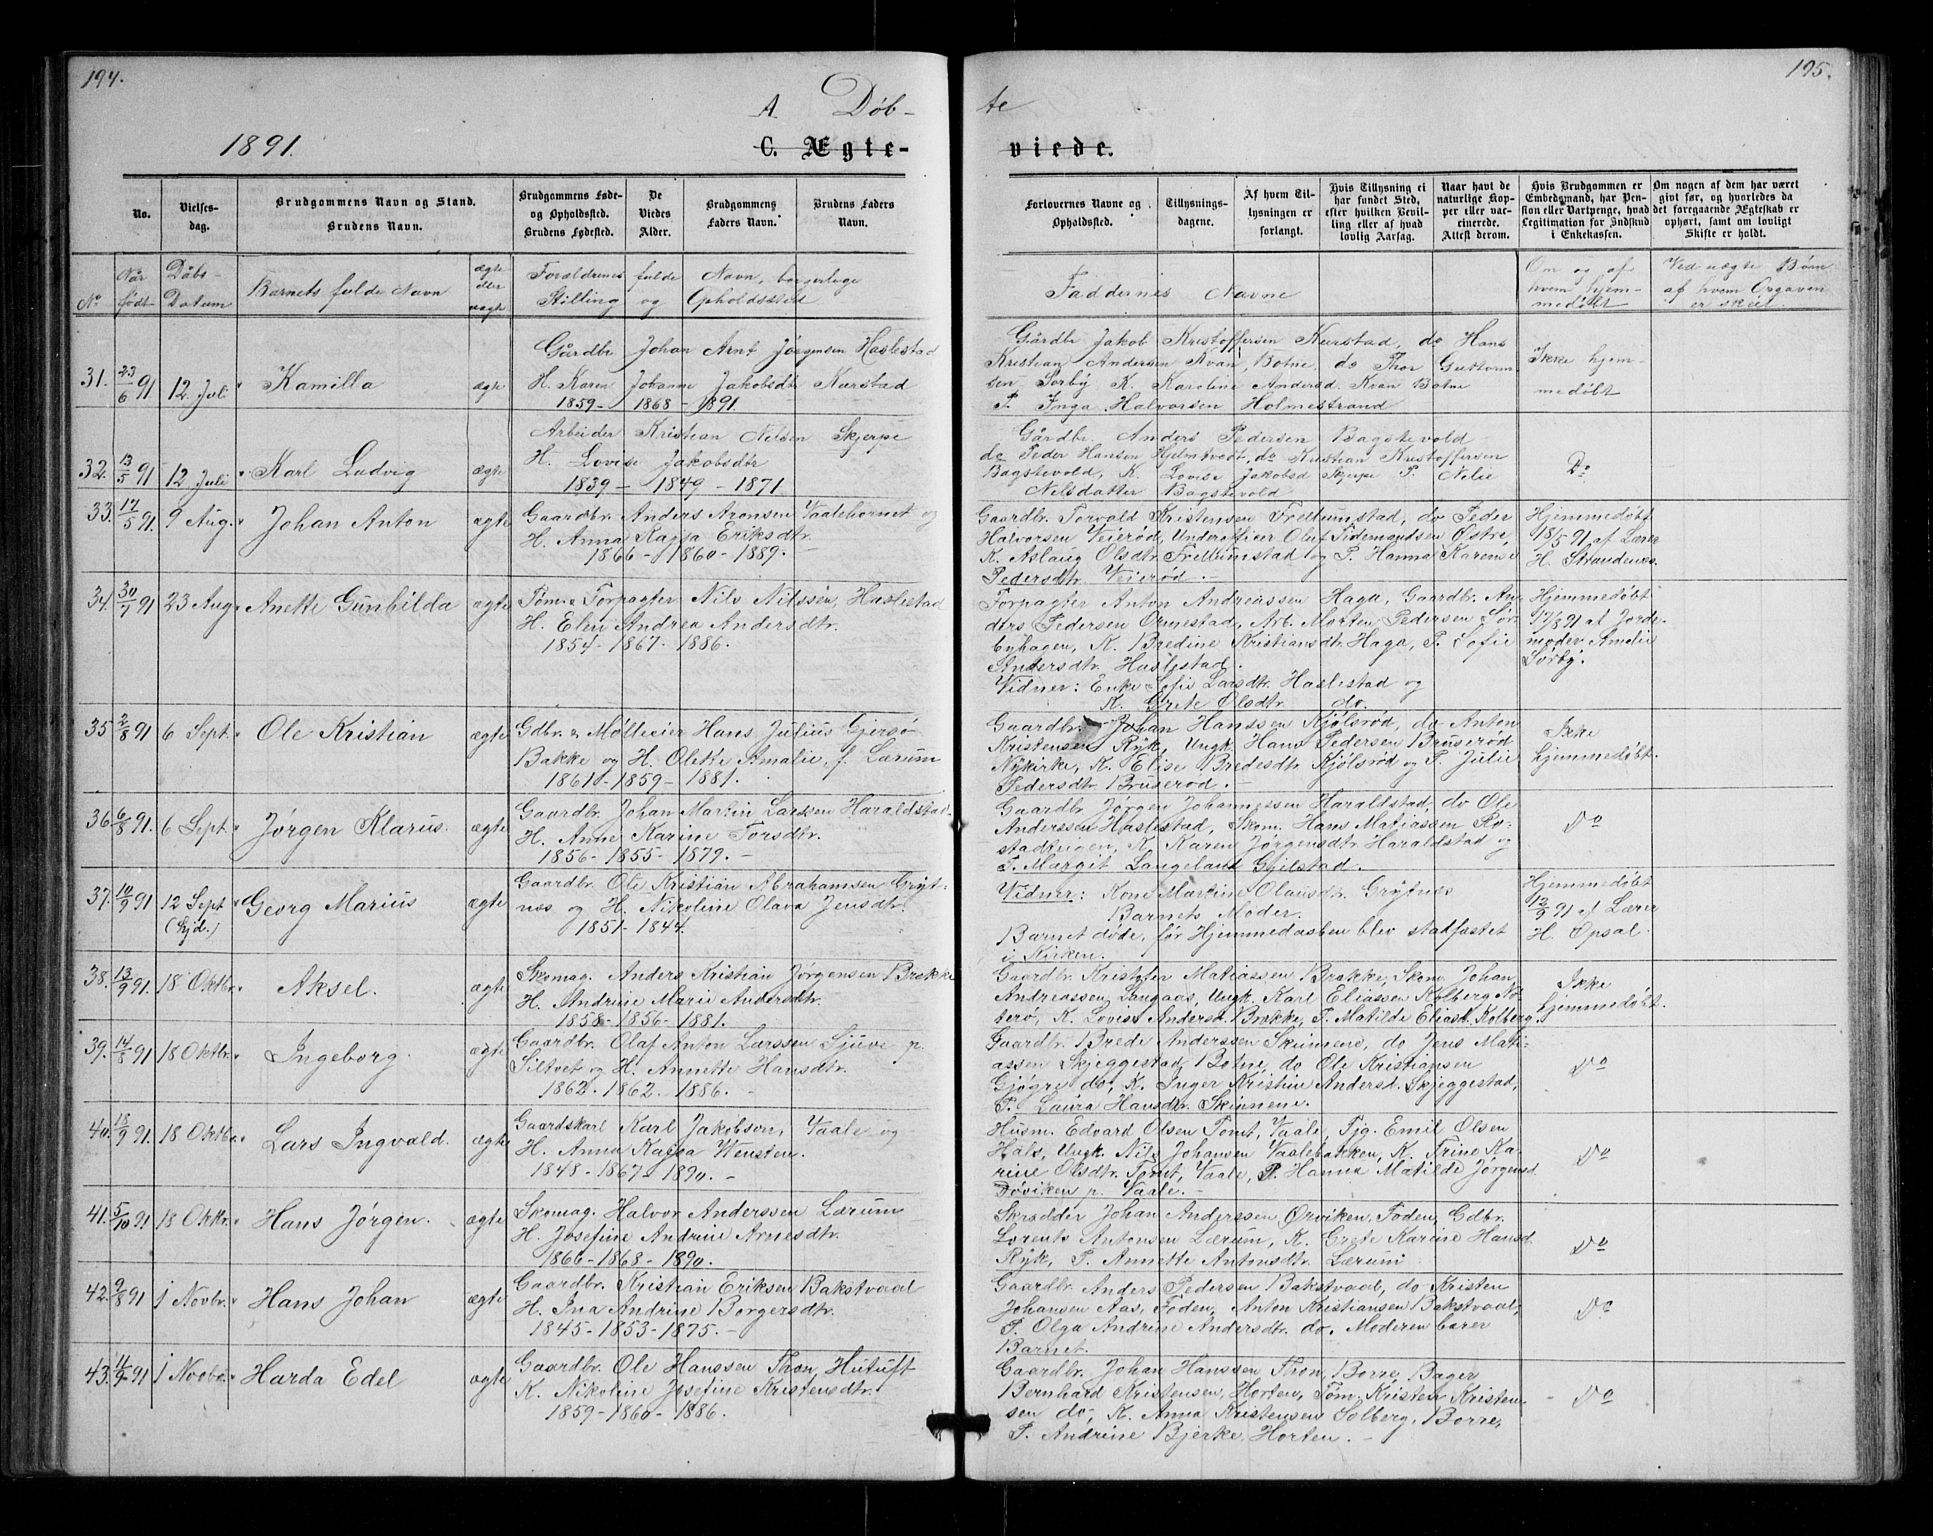 194.
A. Döb-
1891.
C. Ægte-
No.
Vielses-
dag.
Brudgommens Navn og Stand.
Brudens Navn.
Brudgommens Føde-
og Opholdssted.
Brudens Fødested.
De
Viedes
Alder.
Brudgommens
Faders Navn.
Brudens Faders
Navn.
No
Når
født
Döbs-
Datum
Barnets fulde Navn
ægte
eller
uægte
Forældrenes fulde Navn, borgerlige
Stilling og Opholdssted
31. 23/6 91 12 Juli Kamilla ægte
Gårdbr Johan Arnt Jörgensen Haslestad
H. Karen Johanne Jakobsdtr Kurstad
1859 - 1868 - 1891.
32. 13/5 91 12 Juli Karl Ludvig ægte
Arbeider Kristian Nelsen Skjerpe
H. Lovise Jakobsdtr
1839 - 1849 - 1871
33. 17/5 91. 9 Aug. Johan Anton ægte
Gaardbr. Anders Aronsen Vaalehornet og
H. Anna Kajsa Eriksdtr.
1866 - 1860 - 1889. -
34. 30/7 91 23 Aug. Anette Gunhilda ægte
Töm. & Forpagter Nils Nilssen, Haslestad
H. Elen Andrea Andersdtr.
1854 - 1867 - 1886.
35 2/8 91 6 Sept. Ole Kristian ægte
Gdbr. & Mølleeier Hans Julius Gjersø
Bakke og H. Oleke Amalie, f. Lærum
1861 - 1859 - 1881.
36 6/8 91. 6 Sept. Jörgen Klarus. ægte
Gaardbr. Johan Martin Larssen Haraldstad
H. Anne Karine Torsdtr.
1856 - 1855 - 1879. -
37. 10/9 91 12 Sept. (hjd.) Georg Marius ægte
Gaardbr. Ole Kristian Abrahamsen Gryt-
nes og H. Nikoline Olava Jensdtr.
1851 - 1844.
38. 13/9 91. 18 Oktbr. Aksel. ægte
Skomag. Anders Kristian Jörgensen Brække
H. Andrine Marie Andersdtr.
1858 - 1856 - 1881.
39. 14/8 91 18 Oktbr. Ingeborg. ægte
Gaardbr. Olaf Anton Larssen Sjuve p.
Siltvet og H. Annette Hansdtr.
1862. 1862. 1886. -
40. 18/9 91. 18 Oktbr. Lars Ingvald. ægte
Gaardskarl Karl Jakobson, Vaale og
H. Anna Kajsa Wensten.
1848 - 1867 - 1890. -
41. 5/10 91 18 Oktbr. Hans Jörgen. ægte
Skomag. Halvor Anderssen Lærum
H. Josefine Andrine Arnesdtr.
1866 - 1868 - 1890.
42. 9/8 91 1 Novbr. Hans Johan ægte
Gaardbr. Kristian Eriksen Bakstvaal
H. Ina Andrine Borgersdtr.
1845 - 1853 - 1875. -
43. 11/9 91 1 Novbr. Harda Edel ægte
Gaardbr. Ole Hanssen Thon, Hutuft
K. Nikoline Josefine Kristensdtr.
1859 - 1860 - 1886.
195.
te
viede.
Forlovernes Navne og
Opholdssted.
Tillysnings-
dagene.
Af hvem Til-
lysningen er
forlangt.
Hvis Tillysning ei
har fundet Sted,
efter hvilken Bevil-
ling eller af hvad
lovlig Aarsag.
Naar havt de
naturlige Kop-
per eller vac-
cinerede.
Attest derom.
Hvis Brudgommen er
Embedsmand, har Pen-
sion eller Vartpenge, hvad
Legitimation for Indskud
i Enkekassen.
Om nogen af dem har været
givt før, og hvorledes da
det foregaaende Ægteskab er
ophørt, samt om lovligt
Skifte er holdt.
Faddernes Navne
Om og af
hvem hjem-
medöbt
Ved uægte Børn
af hvem Opgaven
er skeet.
Gårdbr Jakob Kristoffersen Kurstad, do Hans
Kristian Andersen Kvan Botne, do Thor Guttorm
sen Sörby K. Karoline Andersd. Kvan Botne
P. Inga Halvorsen Holmestrand
Ikke hjem-
medöbt
Gårdbr Anders Pedersen Bagstevold
do Peder Hansen Hjelmtvedt, do Kristian Kristoffersen
Bagstevold, K. Lovise Jakobsd Skjerpe P. Nelie
Nelsdatter Bagstevold
Do
Gaardbr. Torvald Kristensen Frellumstad, do Peder
Halvorsen Veierød, Underofficer Oluf Tidemandsen Østre,
K. Aslaug Olsdtr. Frellumstad og P. Hanna Karense
Pedersdtr. Veierød. -
Hjemmedöbt
18/5 91 af Lærer
H. Strandenæs.
Forpagter Anton Andreassen Haga, Gaardbr. An-
ders Pedersen Ormestad, Arb. Morten Pedersen Sör-
byhagen, K. Bredine Kristiansdtr. Haga, P. Sofie
Andersdtr. Haslestad.
Vidner: Enke Sofie Larsdtr. Haslestad og
K. Grete Olsdtr. do.
Hjemmedöbt
17/8 91 af Jorde-
moder Amalie
Sörby.
Gaardbr. Johan Hanssen Kjölsrød, do Anton
Kristensen Ryk, Ungk. Hans Pedersen Bruserød
Nykirke, K. Elise Bredesdtr. Kjölsrød og P. Julie
Pedersdtr. Bruserød. -
Ikke
hjemmedöbt.
Gaardbr Jörgen Johannessen Haraldstad, do Ole
Anderssen Haslestad, Skom. Hans Matiassen Ro-
stadteigen, K. Karen Jörgensdtr. Haraldstad og
P. Margit Langeland Gjilstad.
Do
Vidner: Kone Martine Olausdtr. Grytnes
Barnets Moder.
Barnet døde, før Hjemmedaaben blev stadfæstet
i Kirken.
Hjemmedöbt
12/9 91 af Lærer
H. Opsal.
Gaardbr. Kristofer Matiassen Brække, Skom. Johan
Andreassen Langaas, Ungk. Karl Eliassen Kolberg Nö-
terø, K. Lovise Andersd. Brække, P. Matilde Eliasd. Kolberg.
Ikke
hjemmedöbt.
Gaardbr. Brede Anderssen Skinnene, do Jens Mati-
assen Skjeggestad, Botne, do Ole Kristiansen
Gjögre do, K. Inger Kristine Andersd. Skjeggestad,
P. Laura Hansdtr. Skinnene.
Do
Husm. Edvard Olsen Tomt, Vaale, Tjg. Emil Olsen
Hals, Ungk. Nils Johansen Vaalebakken, K. Trine Ka-
rine Olsdtr. Tomt, Vaale, P. Hanna Matilde Jörgensd
Döviken p. Vaale. -
Do
Skrædder Johan Anderssen Ørviken, Foden, Gdbr.
Lorents Antonsen Lærum, K. Grete Karine Hansd
Ryk, P. Annette Antonsdtr. Lærum
Do
Gaardbr. Anders Pedersen Bakstvaal, do Kristen
Johansen Aas, Foden, Anton Kristiansen Bakstvaal,
P. Olga Andrine Andersdtr. do. Moderen bærer
Barnet.
Do
Gaardbr. Johan Hanssen Thon, Borre, Bager
Bernhard Kristensen, Horten, Töm. Kristen Kristen-
sen do, K. Anna Kristensen Solberg, Borre,
P. Andrine Bjerke, Horten. -
- Do